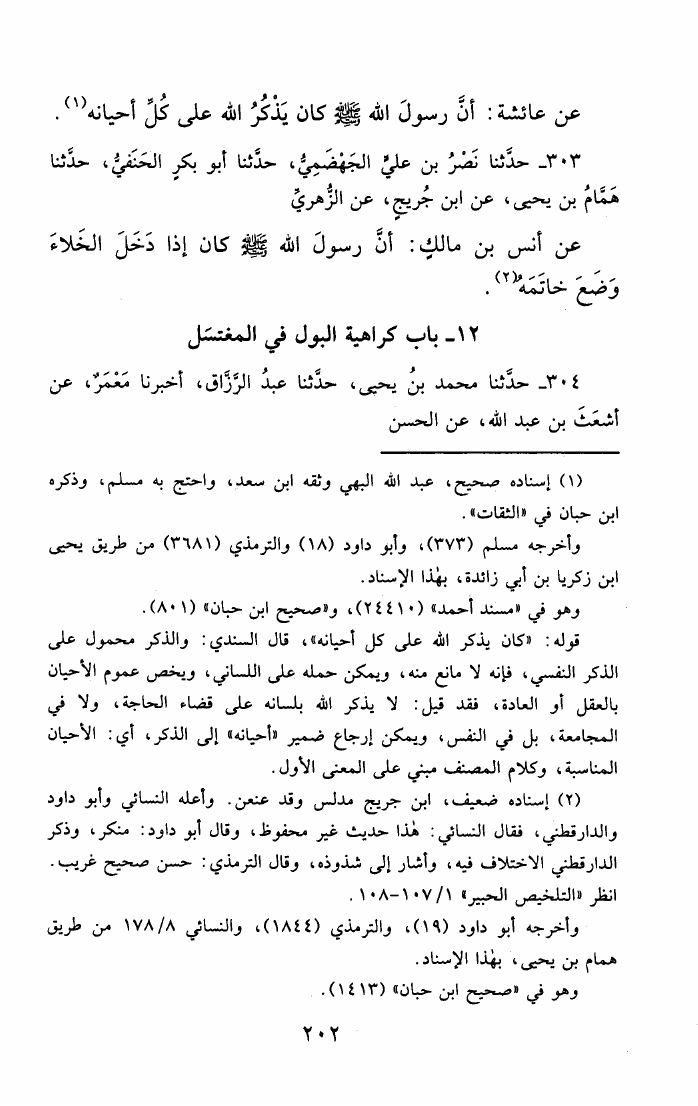 عن عائشة: أنَّ رسولَ الله ﷺ كان يَذْكُرُ الله على كُلِّ أحيانه(١).
٣٠٣ـ حدَّثنا نَصْرُ بن عليٍّ الجَهْضَمِيُّ، حدَّثنا أبو بكرٍ الحَنَفيُّ، حدَّثنا
هَمَّامُ بن يحيى، عن ابن جُريجٍ، عن الزُّهريِّ
عن أنس بن مالكٍ: أنَّ رسولَ الله ﷺ كان إذا دَخَلَ الخَلاءَ
وَضَعَ خاتَمَهُ(٢).
١٢ـ باب كراهية البول في المغتسَل
٣٠٤ـ حدَّثنا محمد بنُ يحيى، حدَّثنا عبدُ الرَّزَّاق، أخبرنا مَعْمَرٌ، عن
أشعَثَ بن عبد الله، عن الحسن
(١) إسناده صحيح، عبد الله البهي وثقه ابن سعد، واحتج به مسلم، وذكره
ابن حبان في «الثقات».
وأخرجه مسلم (٣٧٣)، وأبو داود (١٨) والترمذي (٣٦٨١) من طريق يحيى
ابن زكريا بن أبي زائدة، بهٰذا الإسناد.
وهو في «مسند أحمد» (٢٤٤١٠)، و«صحيح ابن حبان» (٨٠١).
قوله: «كان يذكر الله على كل أحيانه»، قال السندي: والذكر محمول على
الذكر النفسي، فإنه لا مانع منه، ويمكن حمله على اللساني، ويخص عموم الأحيان
بالعقل أو العادة، فقد قيل: لا يذكر الله بلسانه على قضاء الحاجة، ولا في
المجامعة، بل في النفس، ويمكن إرجاع ضمير «أحيانه» إلى الذكر، أي: الأحيان
المناسبة، وكلام المصنف مبني على المعنى الأول.
(٢) إسناده ضعيف، ابن جريج مدلس وقد عنعن. وأعله النسائي وأبو داود
والدارقطني، فقال النسائي: هٰذا حديث غير محفوظ، وقال أبو داود: منكر، وذكر
الدارقطني الاختلاف فيه، وأشار إلى شذوذه، وقال الترمذي: حسن صحيح غريب.
انظر «التلخيص الحبير» ١/ ١٠٧-١٠٨.
وأخرجه أبو داود (١٩)، والترمذي (١٨٤٤)، والنسائي ١٧٨/٨ من طريق
همام بن يحيى، بهٰذا الإسناد.
وهو في «صحيح ابن حبان» (١٤١٣).
٢٠٢